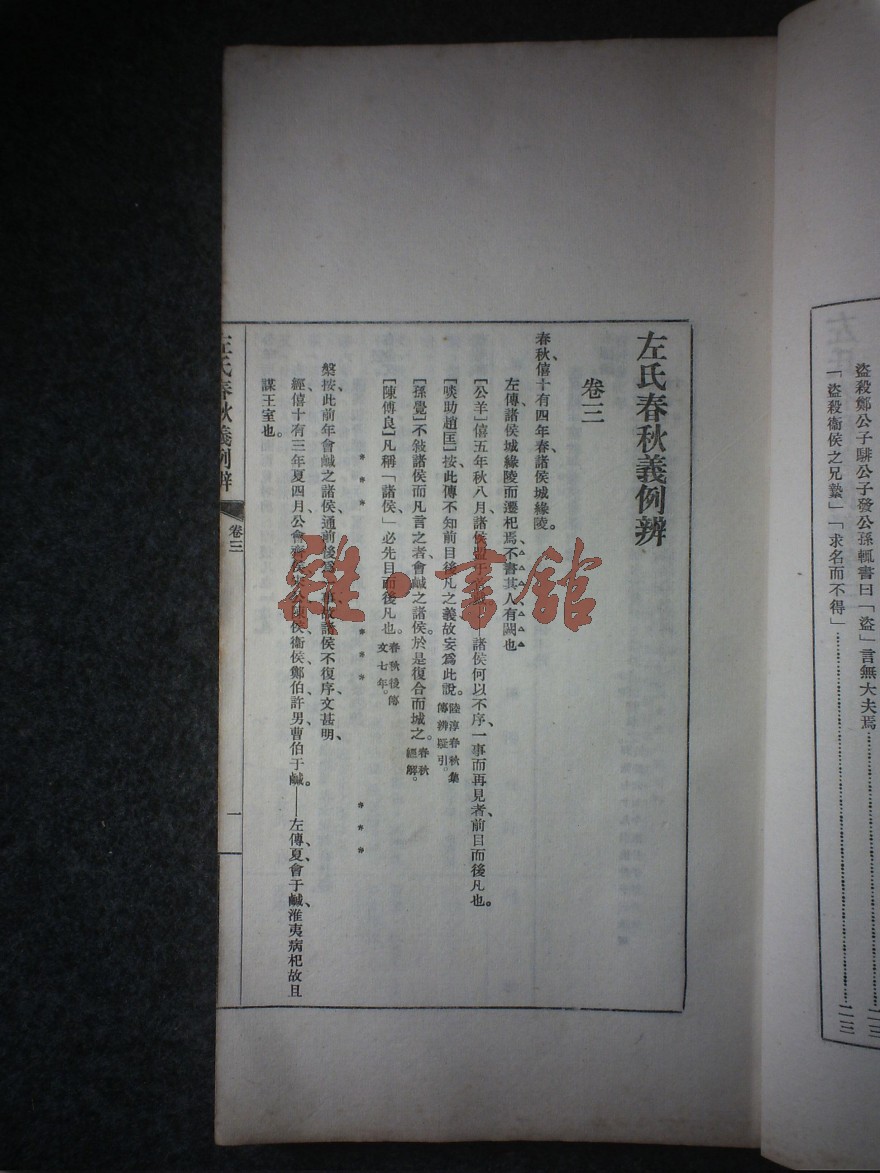 盜殺鄭公子騑公子發公孫輒書曰「盜」言無大夫焉……二三
「盜殺衞侯之兄縶」「求名而不得」……二三
左氏春秋義例辨
卷三
春秋僖十有四年春、諸侯城緣陵。
左傳諸侯城緣陵而遷杞焉、不書其人、有闕也
［公羊］僖五年秋八月、諸侯盟于諸侯何以不序、一事而再見者、前目而後凡也。
［啖助趙匡］按此傳不知前目後凡之義、故妄爲此說。陸淳春秋集傳辨疑引。
［孫覺］不敍諸侯而凡言之者、會鹹之諸侯、於是復合而城之。春秋經解。
［陳傅良］凡稱「諸侯」必先目而後凡也。春秋後傳文七年。
槃按此前年會鹹之諸侯、通前後爲一事、故諸侯不復序、文甚明、
經僖十有三年夏四月、公會齊侯宋公陳侯衞侯鄭伯許男曹伯于鹹。——左傳、夏、會于鹹、淮夷病杞故、且
謀王室也。
左氏春秋義例辨
卷三
一
雜·書館